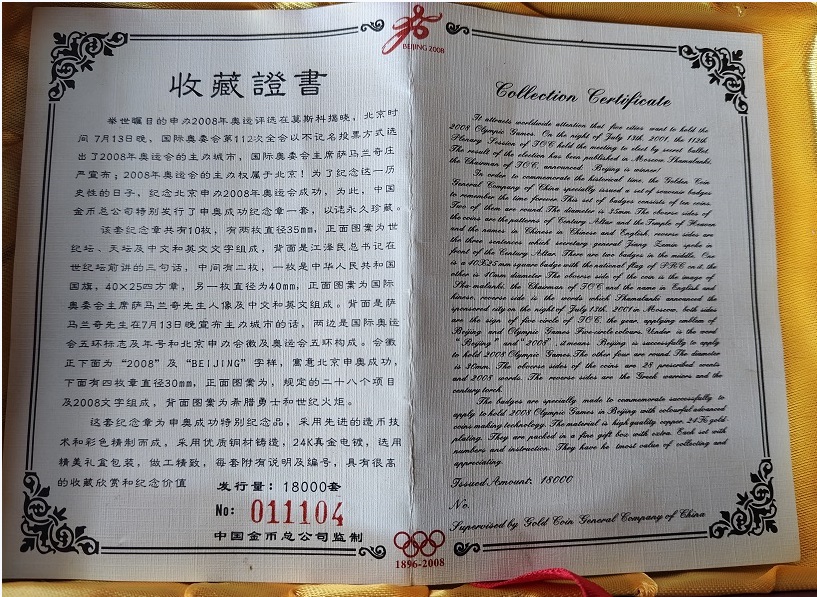 收藏證書
举世瞩目的申办2008年奥运评选在莫斯科揭晓，北京时
间7月13日晚，国际奥委会第112次全会以不记名投票方式选
出了2008年奥运会的主办城市，国际奥委会主席萨马兰奇庄
严宣布；2008年奥运会的主办权属于北京！为了纪念这一历
史性的日子，纪念北京申办2008年奥运会成功，为此，中国
金币总公司特别发行了申奥成功纪念章一套，以诘永久珍藏。
该套纪念章共有10枚，有两枚直径35mm，正面图案为世
纪坛、天坛及中文和英文文字组成，背面是江泽民总书记在
世纪坛前讲的三句话，中间有二枚，一枚是中华人民共和国
国旗，40×25四方章，另一枚直径为40mm，正面图案为国际
奥委会主席萨马兰奇先生人像及中文和英文组成。背面是萨
马兰奇先生在7月13日晚宣布主办城市的话，两边是国际奥运
会五环标志及年号和北京申办会徽及奥运会五环构成。会徽
正下面为“2008”及“BEIJING”字样，寓意北京申奥成功，
下面有四枚章直径30mm，正面图案为，规定的二十八个项目
及2008文字组成，背面图案为希腊勇士和世纪火炬。
这套纪念章为申奥成功特别纪念品，采用先进的造币技
术和彩色精制而成，采用优质铜材铸造，24K真金电镀，选用
精美礼盒包装，做工精致，每套附有说明及编号，具有很高
的收藏欣赏和纪念价值
发行量：18000套
No: 011104
中国金币总公司监制
BEIJING 2008
1896-2008
Collection Certificate
It attracts worldwide attention that five cities want to hold the
2008 Olympic Games. On the night of July 13th, 2001, the 112th
Plenary Session of IOC held the meeting to elect by secret ballot.
The result of the election has been published in Moscow. Shamalanki,
the Chairman of IOC, announced: Beijing is winner!
In order to commemorate the historical time, the Golden Coin
General Company of China specially issued a set of souvenir badges
to remember the time forever. This set of badges consists of ten coins.
Two of them are round. The diameter is 35mm. The obverse sides of
the coins are the patterns of Century Altar and the Temple of Heaven
and the names in Chinese in Chinese and English, reverse sides are
the three sentences which secretary general Jiang Zemin spoke in
front of the Century Altar. There are two badges in the middle. One
is a 40X25mm square badge with the national flag of PRC on it, the
other is 40mm diameter. The obverse side of the coin is the image of
Sha malanki, the Chairman of IOC and the name in English and
hinese, reverse side is the words which Shamalanki announced the
sponsored city on the night of July 13th, 2001 in Moscow, both sides
are the sign of five circle of IOC, the year, applying emblem of
Beijing and Olympic Games Five-circle colours. Under is the word
“Beijing” and “2008”, it means Beijing is successfully to apply
to hold 2008 Olympic Games. The other four are round. The diameter
is 30mm. The obverse sides of the coins are 28 prescribed events
and 2008 words. The reverse sides are the Greek warriors and the
century torch.
The badges are specially made to commemorate successfully to
apply to hold 2008 Olympic Games in Beijing with colourful advanced
coins making technology. The material is high quality copper, 24K gold
plating. They are packed in a fine gift box with extra. Each set with
numbers and instruction. They have he tmost value of collecting and
appreciating.
Issued Amount: 18000
No.
Supervised by Gold Coin General Company of China